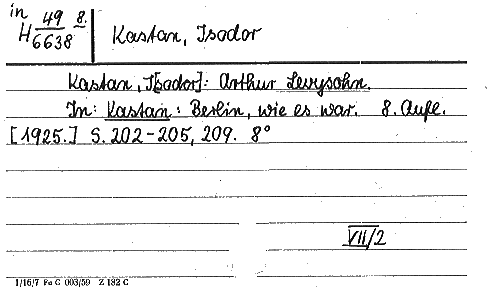 in
H 49 8.
6638
Kastan, Isodor
Kastan, I[sodor]: Arthur Levysohn.
In: Kastan: Berlin, wie es war. 8. Aufl.
[1925.] S. 202-205, 209. 8°
VII/2
1/16/7 Fa C 003/59 Z 182 C